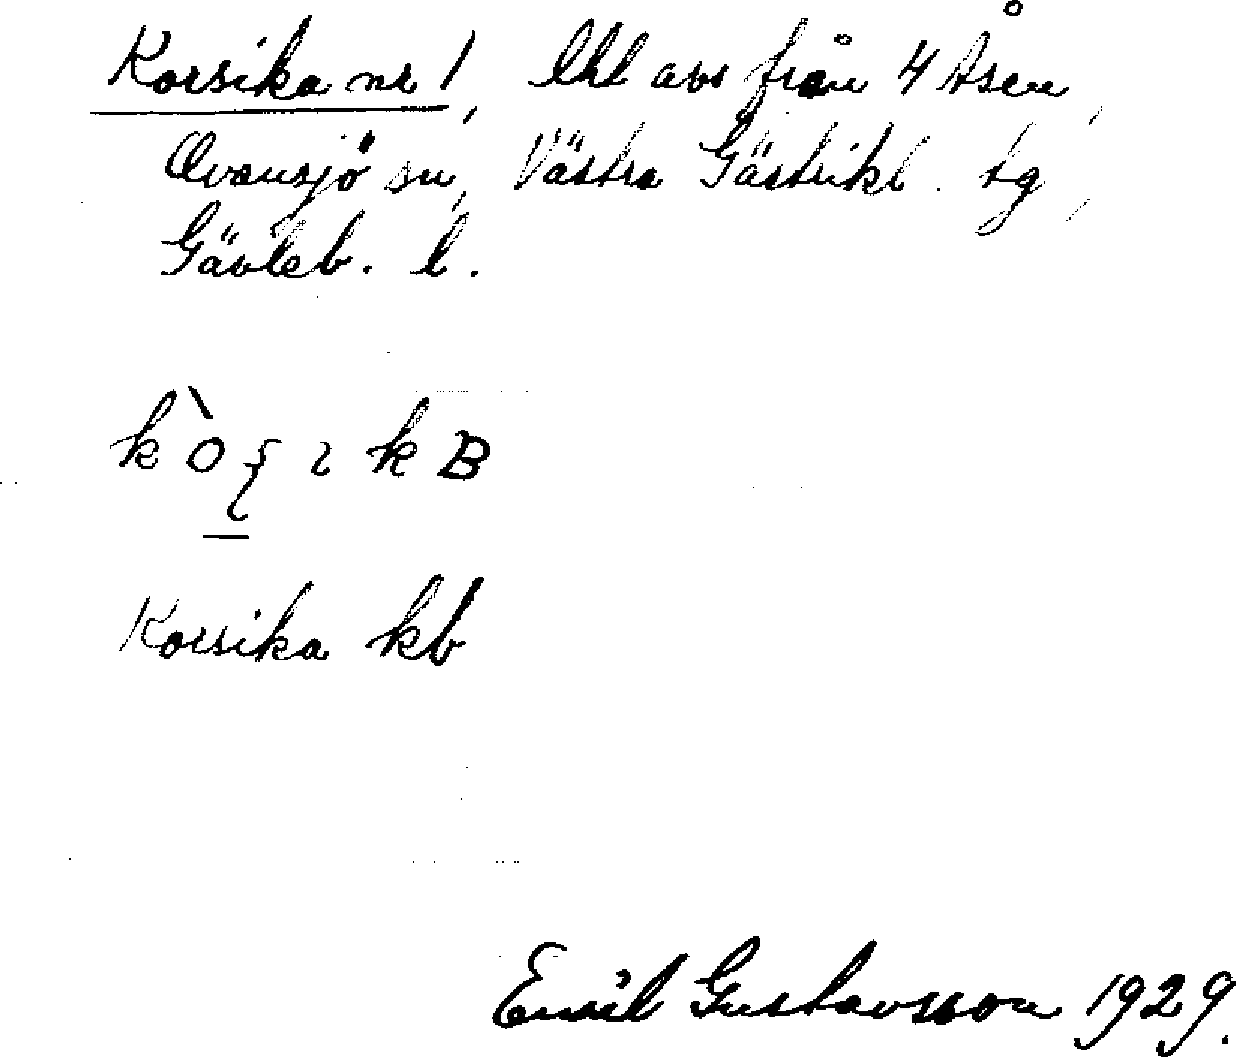 Korsika nr 1, lht avs från 4 Åsen,
Ovansjö sn, Västra Gästrikl. tg,
Gävleb. l.
Korsika kb
Emil Gustavsson 1929.